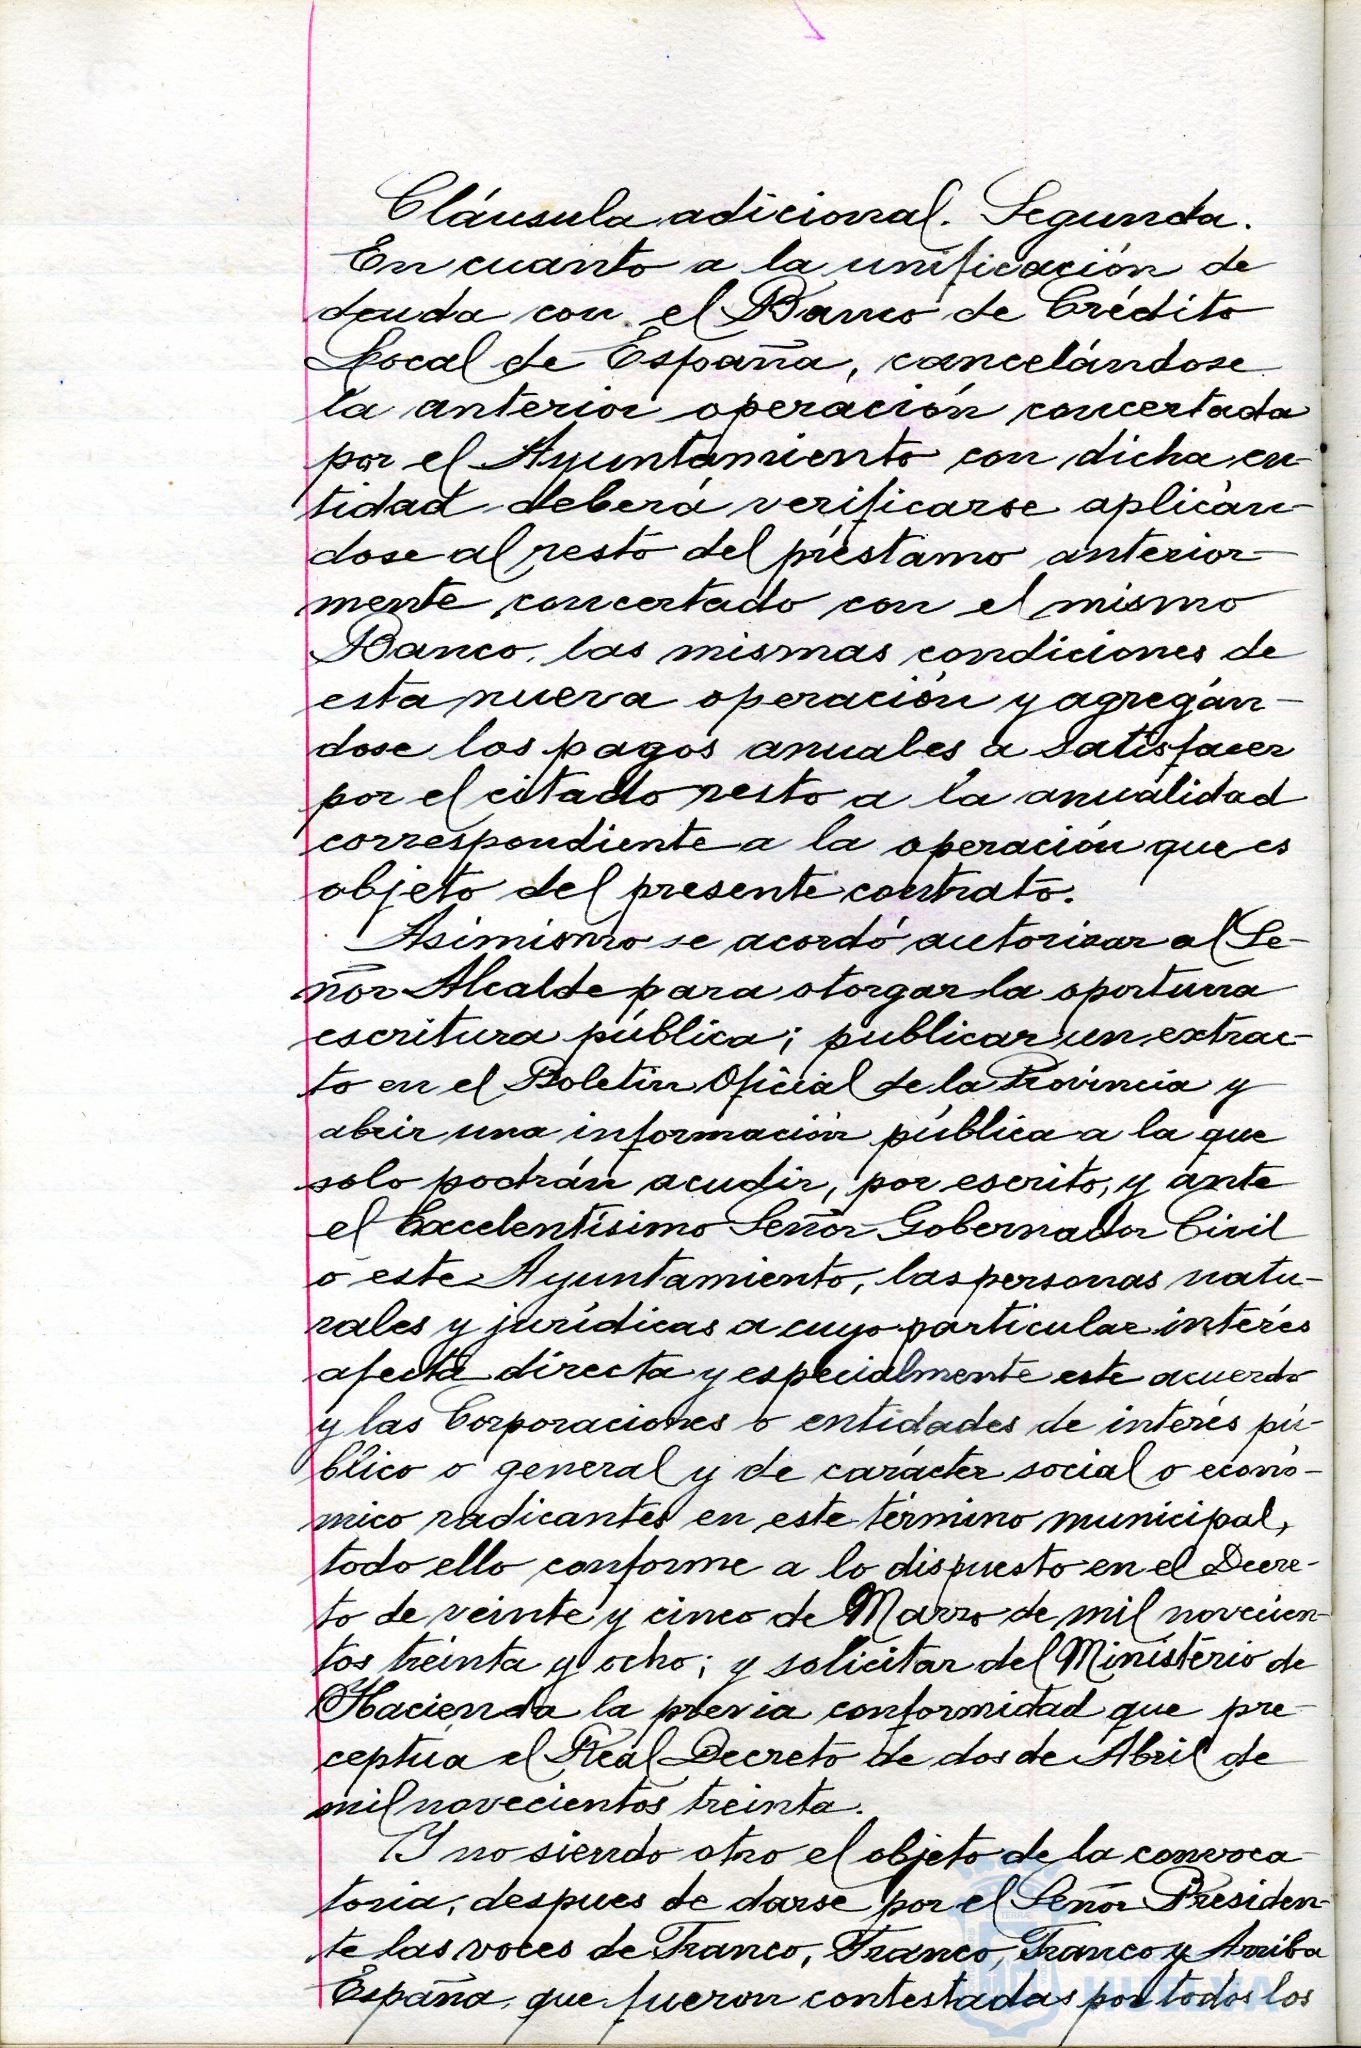 Cláusula adicional. Segunda.
En cuanto a la unificación de
deuda con el Banco de Crédito
Local de España, cancelándose
la anterior operación concertada
por el Ayuntamiento con dicha en-
tidad deberá verificarse aplicán-
dose al resto del préstamo anterior-
mente concertado con el mismo
Banco, las mismas condiciones de
esta nueva operación y agregán-
dose los pagos anuales a satisfacer
por el citado resto a la anualidad
correspondiente a la operación que es
objeto del presente contrato.
Asimismo se acordó autorizar al Se-
ñor Alcalde para otorgar la oportuna
escritura pública; publicar un extrac-
to en el Boletin Oficial de la Provincia y
abrir una información pública a la que
solo podrán acudir, por escrito, y ante
el Excelentísimo Señor Gobernador Civil
o este Ayuntamiento, las personas natu-
rales y jurídicas a cuyo particular interés
afecta directa y especialmente este acuerdo
y las Corporaciones o entidades de interés pú-
blico o general y de carácter social o econó-
mico radicantes en este término municipal,
todo ello conforme a lo dispuesto en el Decre-
to de veinte y cinco de Marzo de mil novecien-
tos treinta y ocho; y solicitar del Ministerio de
Hacienda la previa conformidad que pre-
ceptúa el Real Decreto de dos de Abril de
mil novecientos treinta.
Y no siendo otro el objeto de la convoca-
toria, despues de darse por el Señor Presiden-
te las voces de Franco, Franco, Franco y Arriba
España, que fueron contestadas por todos los
HUELVA